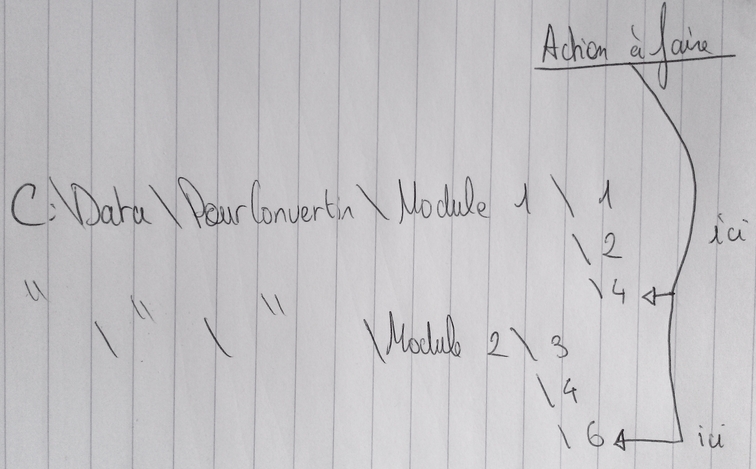 Action à faire
C:\Data\PourConvertir\Module 1\1
\2
ici
" \ " \ " \4
\Module 2\3
\4
\6 ici